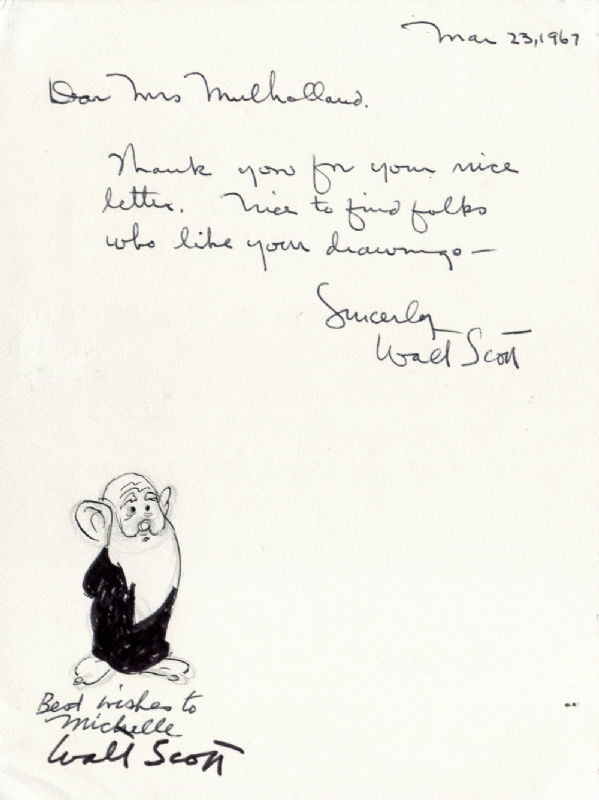 Mar 23, 1967
Dear Mrs Mulholland.
Thank you for your nice
letter. Nice to find folks
who like your drawings —
Sincerely
Walt Scott
Best wishes to
Michelle
Walt Scott